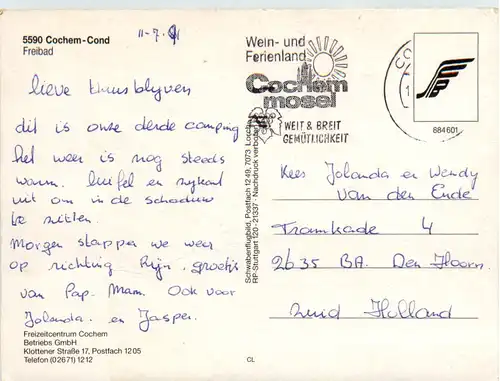 5590 Cochem-Cond
Freibad
11-7.91
lieve thuisblyvers
dit is onze derde camping
het weer is nog steeds
warm.
uit om in de schaduw
te zitten.
Morgen stappen we weer
op richting Rijn, groetjes
van Pap. Mam. Ook voor
Jolanda. en Jasper.
Freizeitcentrum Cochem
Betriebs GmbH
Klottener Straße 17, Postfach 1205
Telefon (02671) 1212
Schwabenflugbild, Postfach 1249, 7073 Lorch
RP-Stuttgart 120-21337 · Nachdruck verboten
CL
Wein- und
Ferienland
Cochem
mosel
WEIT & BREIT
GEMÜTLICHKEIT
884601
Kees Jolanda en Wendy
van den Ende
Tramkade 4
2635 BA. Den Hoorn.
Zuid Holland